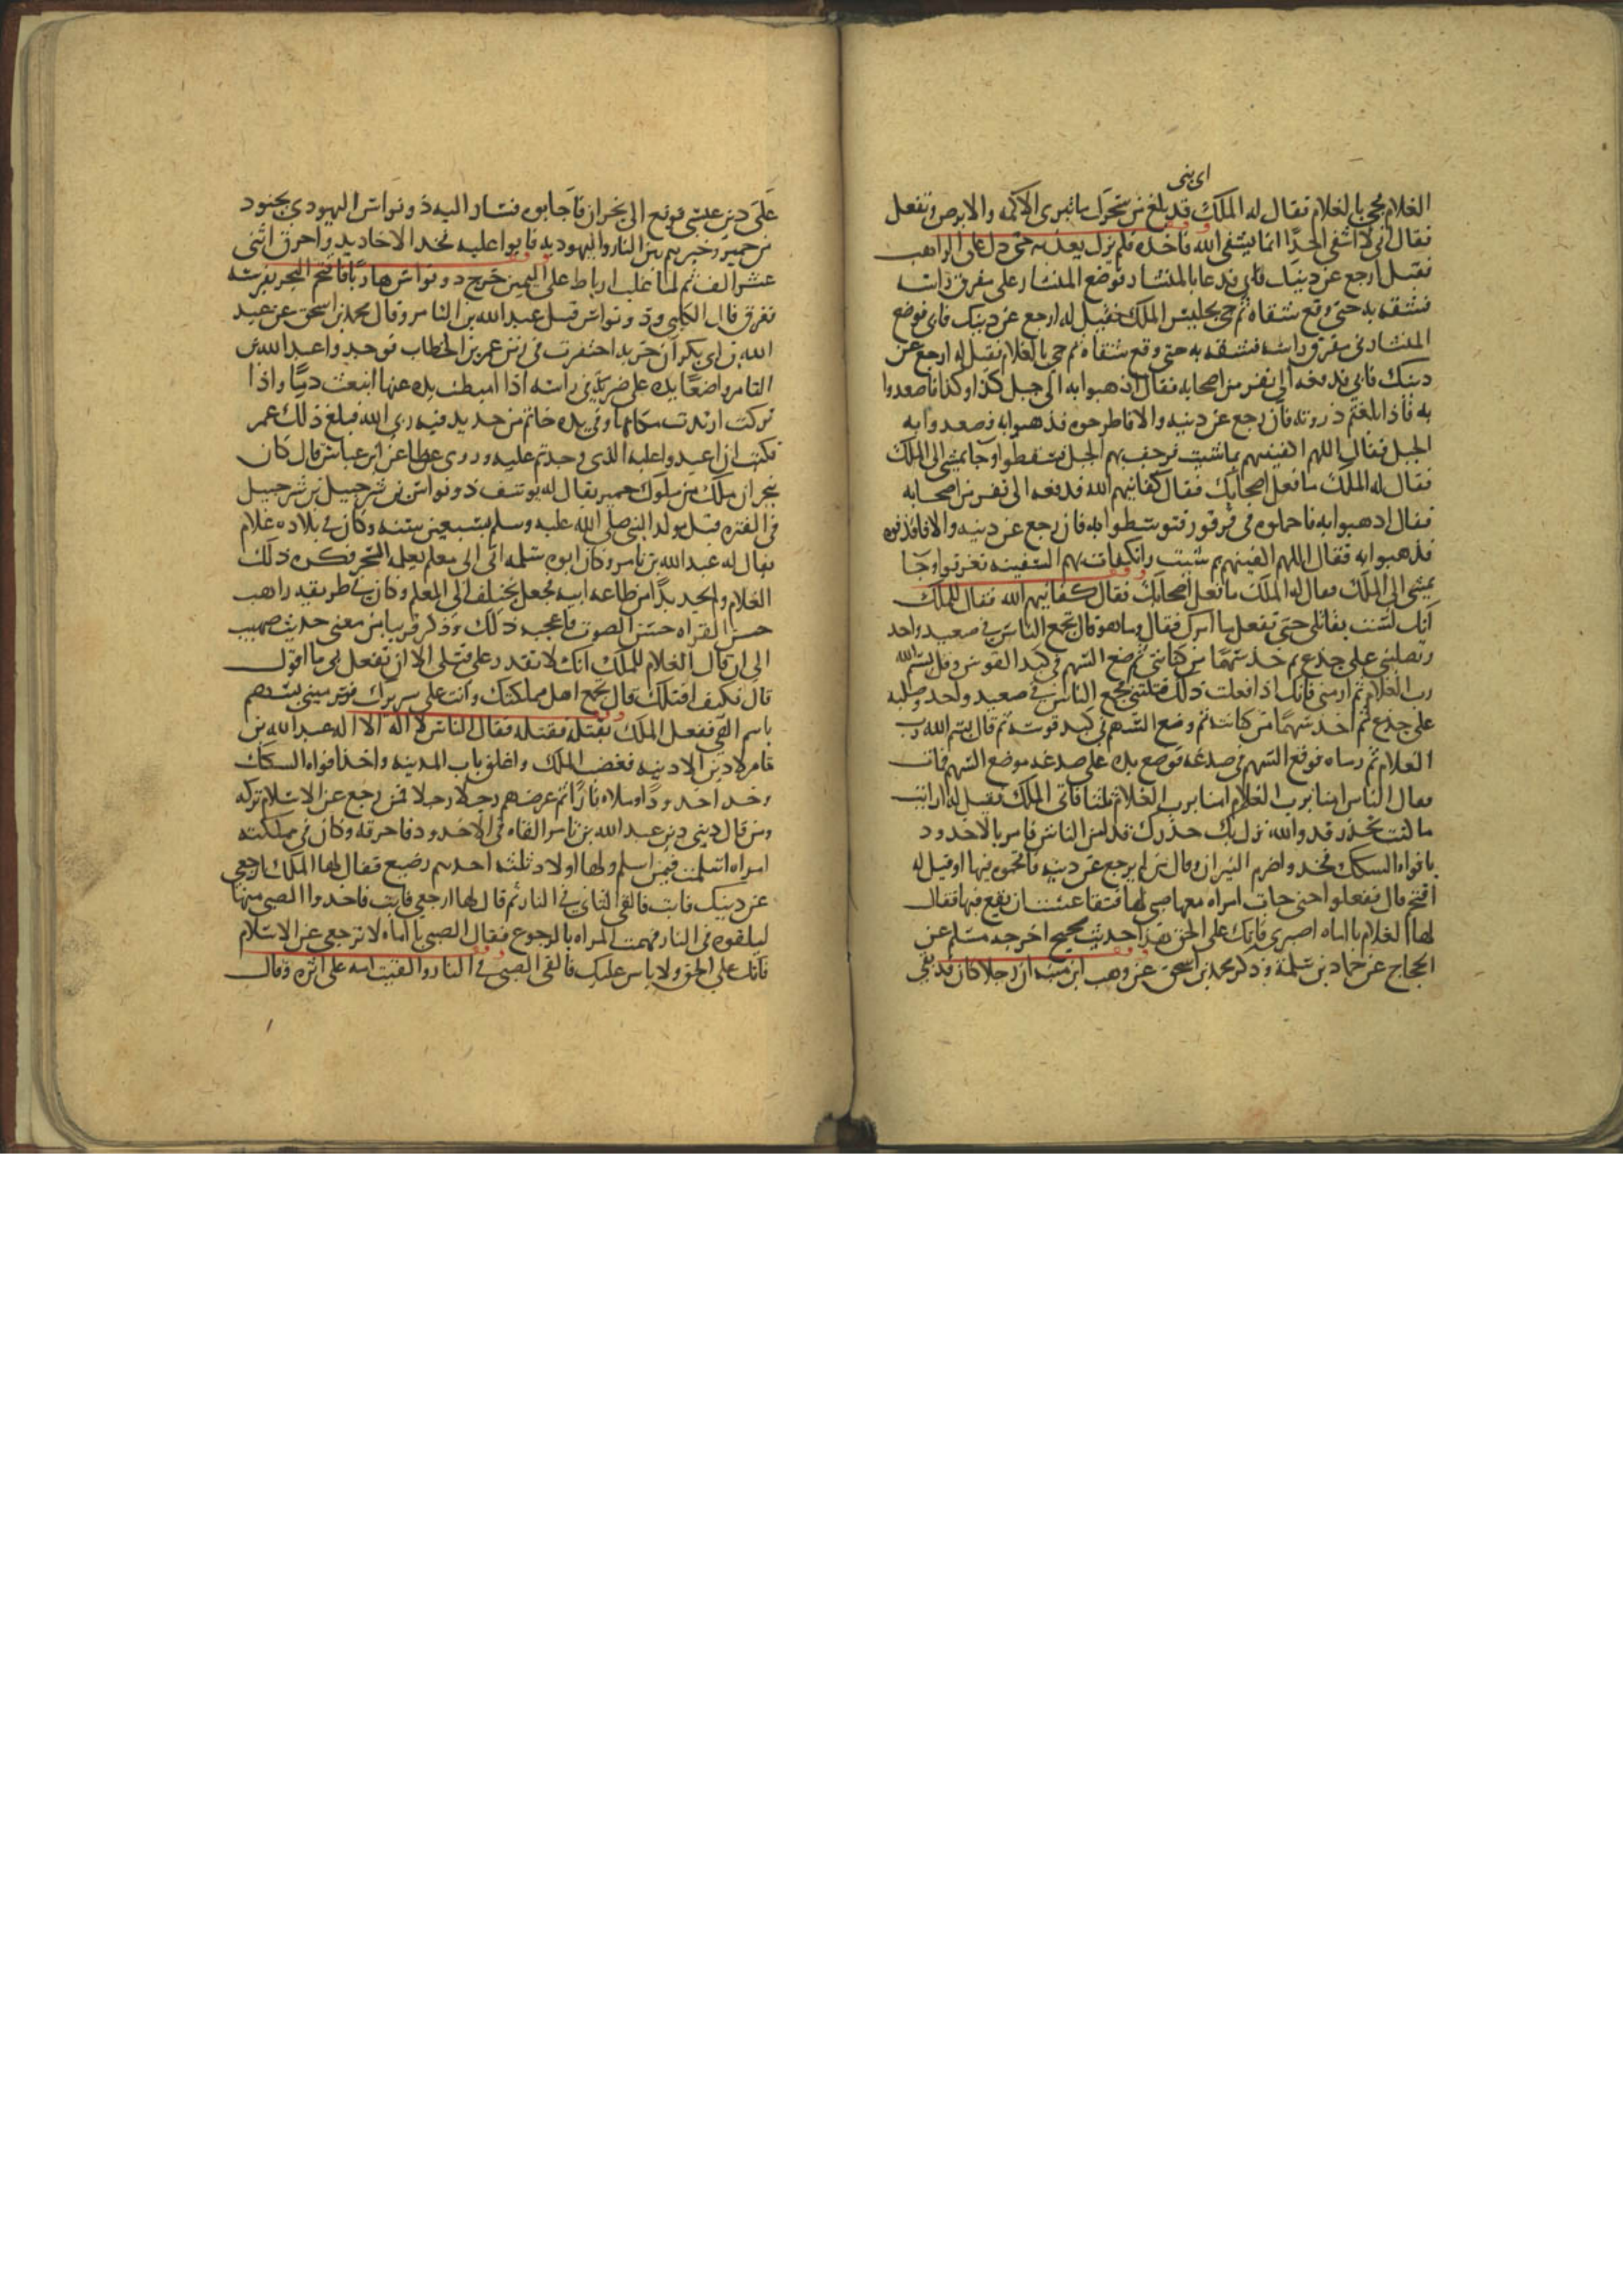 اى بنى
الغلام فجى بالغلام فقال له الملك قد بلغ من سحرك ما تبرى الاكمه والابرص وتفعل
فقال انى لا اشفى احدًا انما يشفى الله فاخذه فلم يزل يعذبه حتى دل على الراهب
فقيل ارجع عن دينك فابى فدعا بالمنشار فوضع المنشار على مفرق راسه
فشقه به حتى وقع شقاه ثم جى بجليس الملك فقيل له ارجع عن دينك فابى فوضع
المنشار فى مفرق راسه فشقه به حتى وقع شقاه ثم جى بالغلام فقيل له ارجع عن
دينك فابى فدفعه الى نفر من اصحابه فقال اذهبوا به الى جبل كذا وكذا فاصعدوا
به فاذا بلغتم ذروته فان رجع عن دينه والا فاطرحوه فذهبوا به فصعدوا به
الجبل فقال اللهم اكفنيهم بما شيت فرجف بهم الجبل فسقطوا وجا يمشى الى الملك
فقال له الملك ما فعل اصحابك فقال كفانيهم الله فدفعه الى نفر من اصحابه
فقال اذهبوا به فاحملوه فى قرقور فتوسطوا به فان رجع عن دينه والا فاقذفوه
فذهبوا به فقال اللهم اكفنيهم بم شيت فانكفات بهم السفينه فغرقوا وجا
يمشى الى الملك فقال له الملك ما فعل اصحابك فقال كفانيهم الله فقال للملك
انك لست بقاتلى حتى تفعل ما آمرك فقال وما هو قال تجمع الناس فى صعيد واحد
وتصلبنى على جذع ثم خذ سهمًا من كنانتى ثم ضع السهم فى كبد القوس وقل بسم الله
رب الغلام ثم ارمنى فانك اذا فعلت ذلك قتلتنى فجمع الناس فى صعيد واحد وصلبه
على جذع ثم اخذ سهمًا من كنانته ثم وضع السهم فى كبد قوسه ثم قال بسم الله رب
الغلام ثم رماه فوقع السهم فى صدغه فوضع يده على صدغه موضع السهم فمات
فقال الناس امنا برب الغلام امنا برب الغلام ثلثا فاتى الملك فقيل له ارايت
ما كنت تحذر قد والله نزل بك حذرك قد امن الناس فامر بالاخدود
بافواه السكك فخدد واضرم النيران وقال من لم يرجع عن دينه فاقحموه فيها او قيل له
اقتحم قال ففعلوا حتى جات امراه معها صبى لها فتقاعست ان تقع فيها فقال
لها الغلام يا اماه اصبرى فانك على الحق هذا حديث صحيح اخرجه مسلم عن
الحجاج عن حماد بن سلمة وذكر محمد بن اسحق عن وهب ابن منبه ان رجلا كان قد بقى
على دين عيسى فوقع الى نجران فاجابوه فسار اليه ذو نواس اليهودى بجنود
من حمير وخيرهم بين النار واليهوديه فابوا عليه فخد الاخاديد واحرق اثنى
عشر الف ثم لما غلب ارباط على اليمن خرج ذو نواس هاربًا فاقتحم البحر بفرسه
فغرق قال الكلبى وذو نواس قتل عبد الله بن التامر وقال محمد بن اسحق عن عبد
الله بن ابى بكر ان خربه احتفرت فى زمن عمر بن الخطاب فوجدوا عبد الله بن
التامر واضعًا يده على ضربة فى راسه اذا اميطت يده عنها انبعث دمًا واذا
تركت ارتدت مكانها وفى يده خاتم من حديد فيه ربى الله فبلغ ذلك عمر
فكتب ان اعيدوا عليه الذى وجدتم عليه وروى عطا عن ابن عباس قال كان
بنجران ملك من ملوك حمير يقال له يوسف ذو نواس بن شرحبيل بن شرحبيل
فى الفتره قبل مولد النبى صلى الله عليه وسلم بسبعين سنه وكان فى بلاده غلام
يقال له عبد الله بن تامر وكان ابوه سلمه الى معلم يعلمه السحر فكره ذلك
الغلام ولم يجد بدًا من طاعه ابيه فجعل يختلف الى المعلم وكان فى طريقه راهب
حسن القراه حسن الصوت فاعجبه ذلك وذكر قريبا من معنى حديث صهيب
الى ان قال الغلام للملك انك لا تقدر على قتلى الا ان تفعل بى ما اقول
قال فكيف اقتلك قال تجمع اهل مملكتك وانت على سريرك فترمينى بسهم
باسم الهى ففعل الملك فقتله فقال الناس لا اله الا اله عبد الله بن
تامر لا دين الا دينه فغضب الملك واغلق باب المدينه واخذ افواه السكك
وخد اخدودًا وملاه نارًا ثم عرضهم رجلا رجلا فمن رجع عن الاسلام تركه
ومن قال دينى دين عبد الله بن تامر القاه فى الاخدود فاحرقه وكان فى مملكته
امراه اسلمت فيمن اسلم ولها اولاد ثلثه احدهم رضيع فقال لها الملك ارجعى
عن دينك فابت فالقى الثانى فى النار ثم قال لها ارجعى فابت فاخذوا الصبى منها
ليلقوه فى النار فهمت المراه بالرجوع فقال الصبى يا اماه لا ترجعى عن الاسلام
فانك على الحق ولا باس عليك فالقى الصبى فى النار والقيت امه على اثره وقال